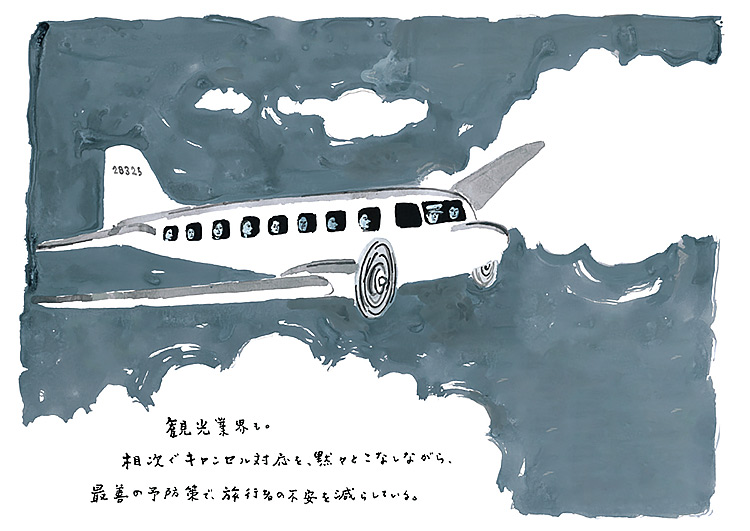 28325
観光業界も。
相次ぐキャンセル対応を、黙々とこなしながら、
最善の予防策で、旅行者の不安を減らしている。